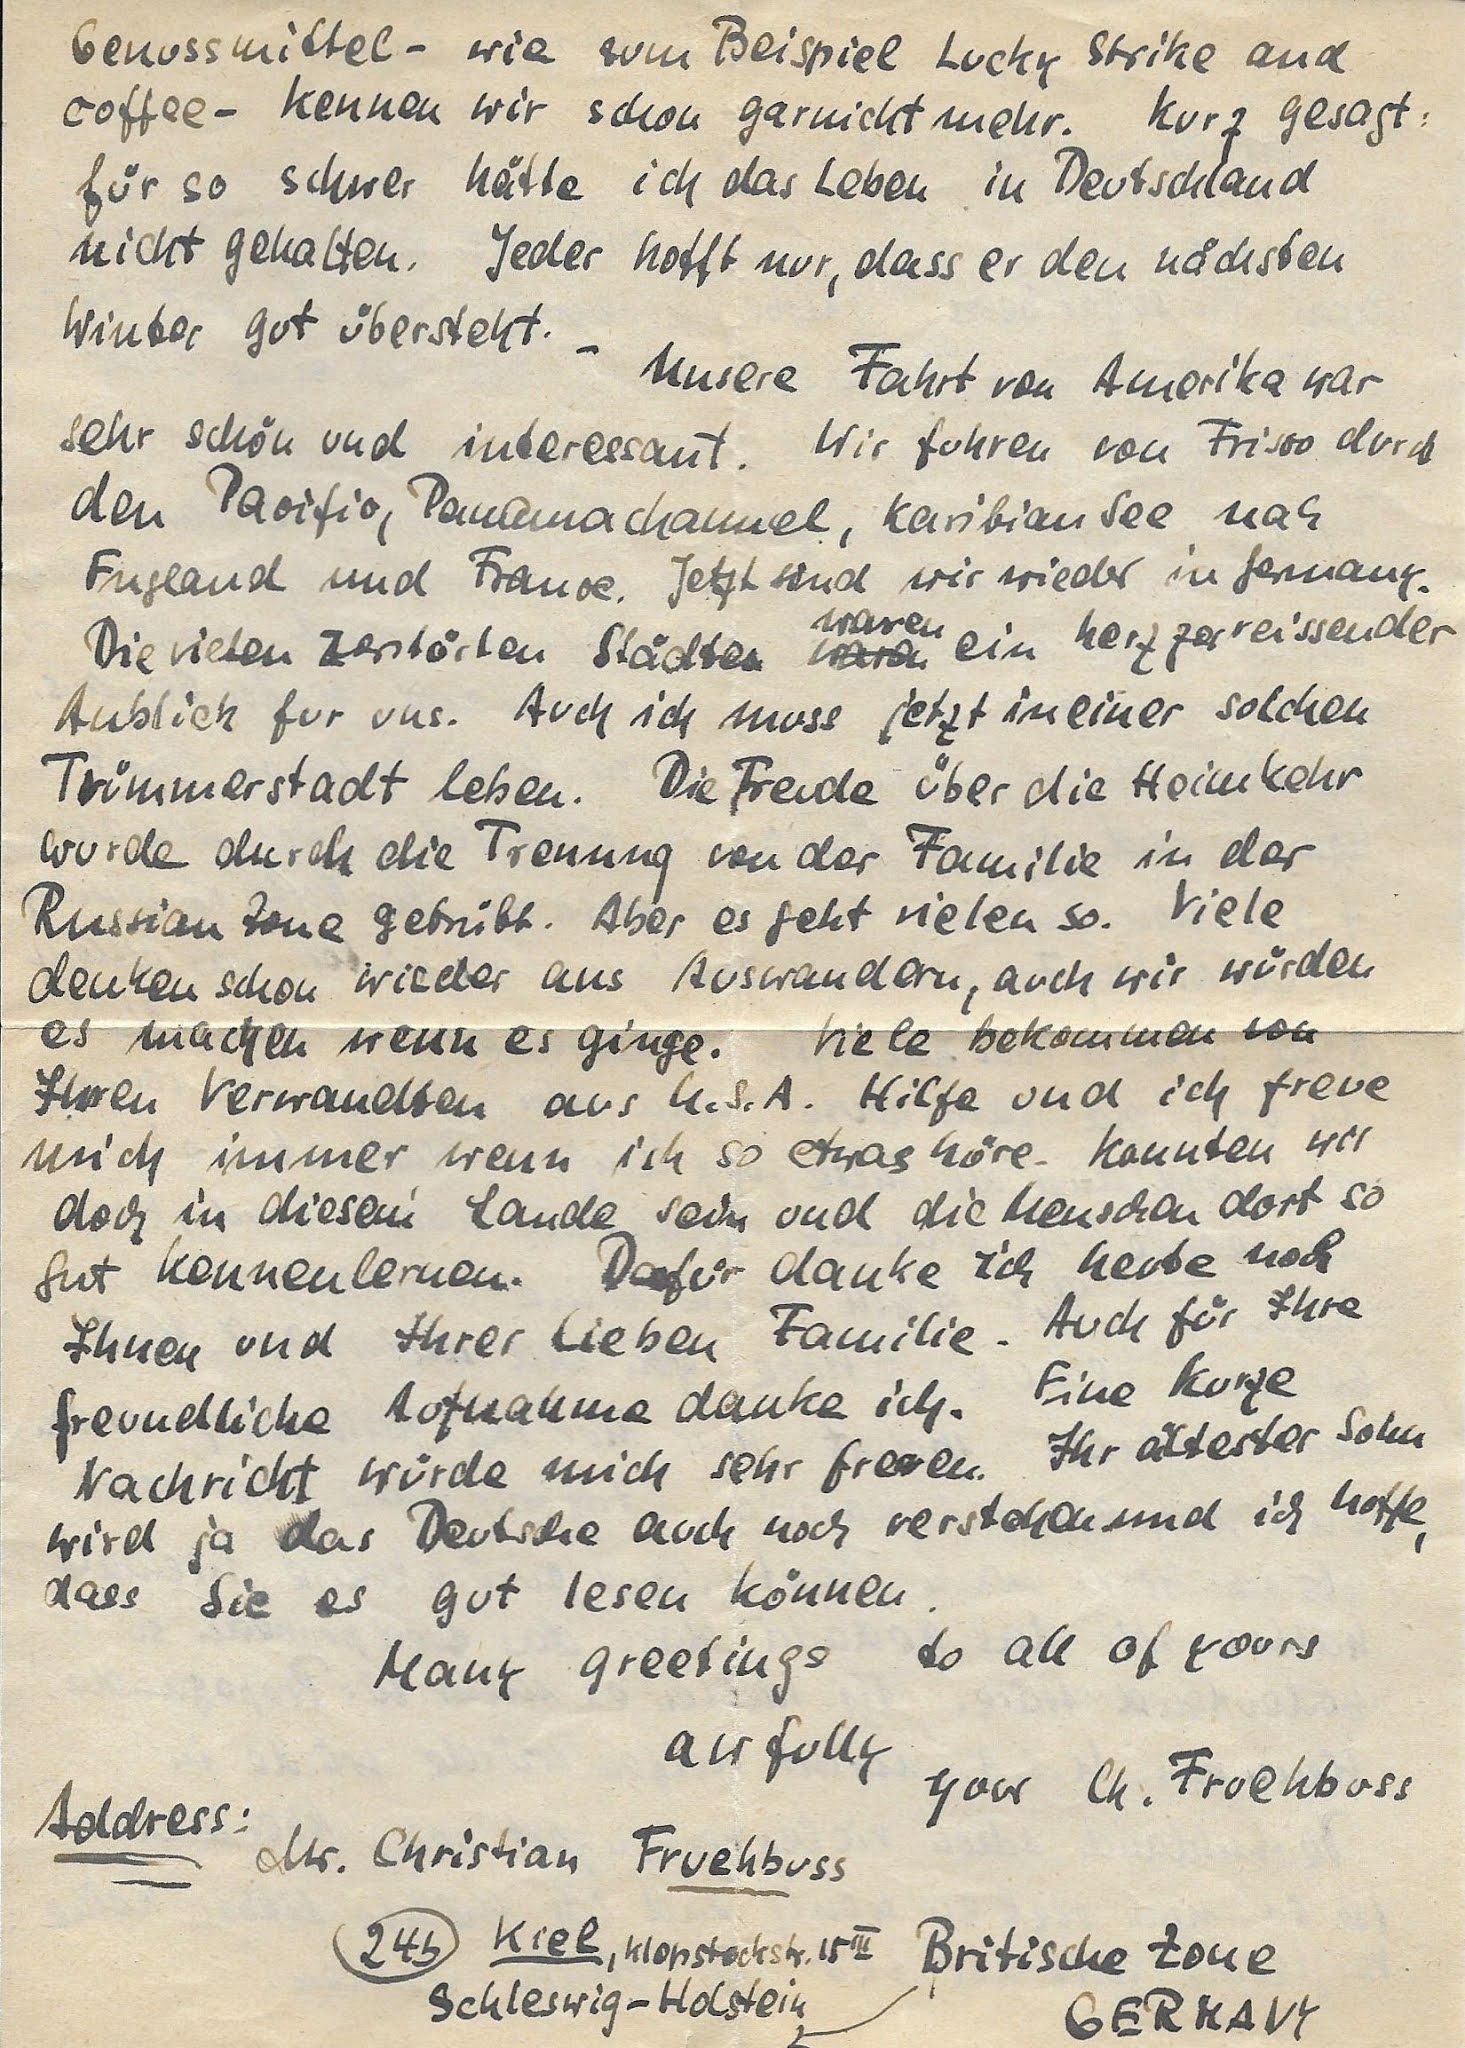 Genussmittel - wie zum Beispiel Lucky Strike and
coffee - kennen wir schon garnicht mehr. Kurz gesagt:
für so schwer hätte ich das Leben in Deutschland
nicht gehalten. Jeder hofft nur, dass er den nächsten
Winter gut übersteht. -
Unsere Fahrt von Amerika war
sehr schön und interessant. Wir fuhren von Frisco durch
den Pacific, Panamachannel, Karibian See nach
England und France. Jetzt sind wir wieder in Germany.
Die vielen zerstörten Städten waren ein herzzerreissender
Anblick fur uns. Auch ich muss jetzt in einer solchen
Trümmerstadt leben. Die Freude über die Heimkehr
wurde durch die Trennung von der Familie in der
Russian Zone getrübt. Aber es geht vielen so. Viele
denken schon wieder ans Auswandern, auch wir würden
es machen wenn es ginge. Viele bekommen von
Ihren Verwandten aus U.S.A. Hilfe und ich freue
mich immer wenn ich so etwas höre. Konnten wir
doch in diesem Lande sein und die Menschen dort so
gut kennenlernen. Dafür danke ich heute noch
Ihnen und Ihrer lieben Familie. Auch für Ihre
freundliche Aufnahme danke ich. Eine kurze
Nachricht würde mich sehr freuen. Ihr ältester Sohn
wird ja das Deutsche auch noch verstehen und ich hoffe,
dass Sie es gut lesen können.
Many greetings to all of yours
awfully
your Ch. Fruehbuss
Address:
Mr. Christian Fruehbuss
24b Kiel, Klopstockstr. 15 III Britische Zone
Schleswig-Holstein
GERMANY